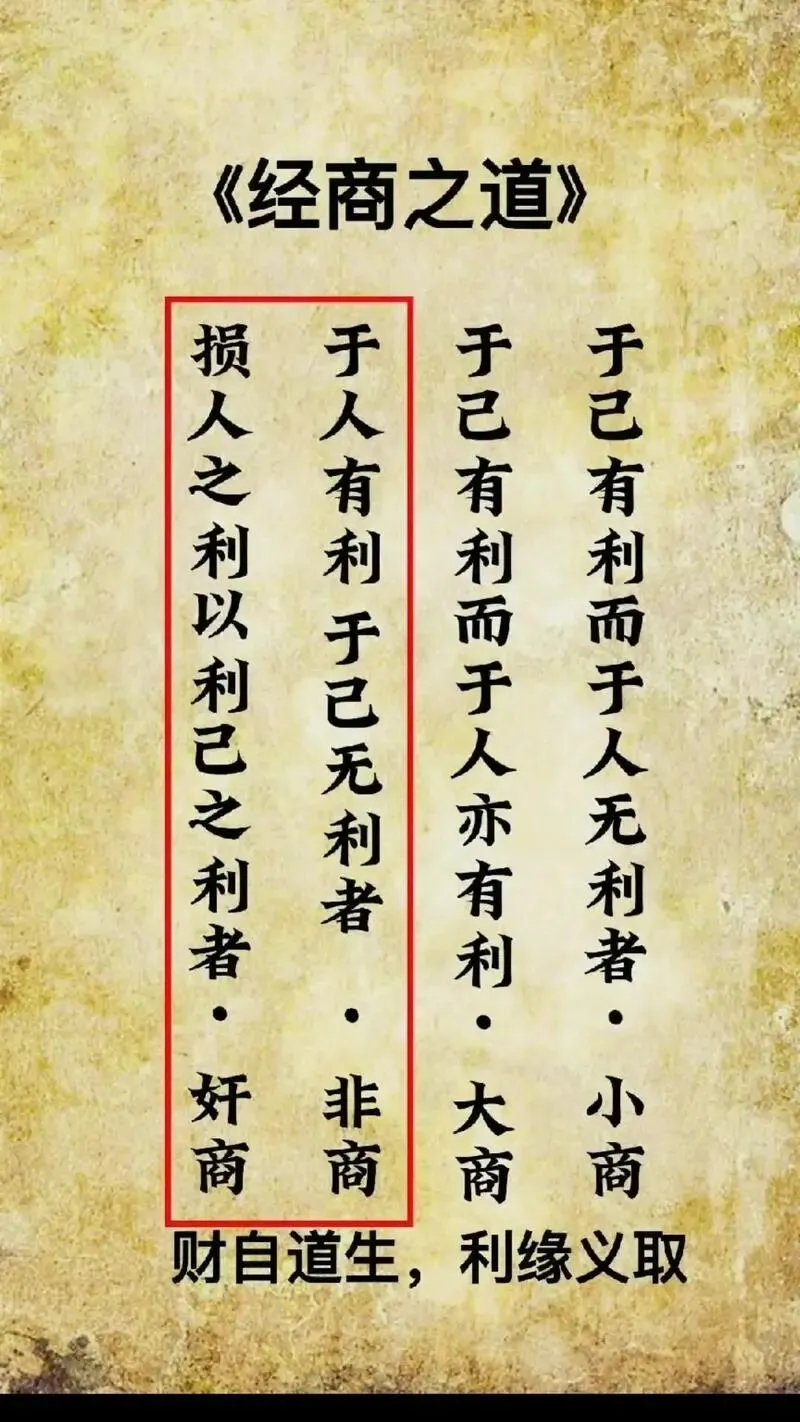 《经商之道》
于己有利而于人无利者·小商
于己有利而于人亦有利·大商
于人有利于己无利者·非商
损人之利以利己之利者·奸商
财自道生，利缘义取